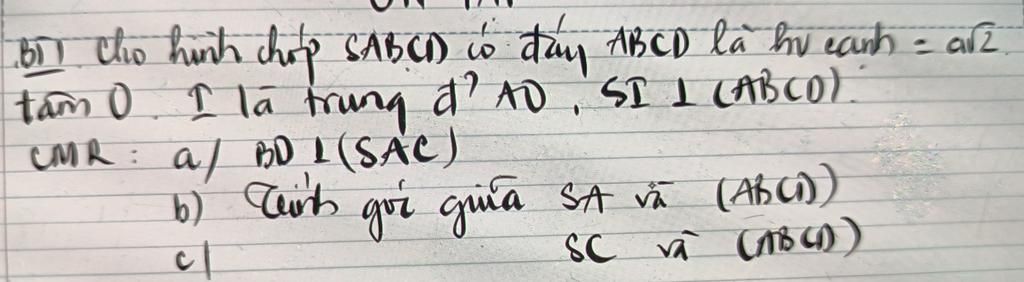 B1) Cho hình chóp SABCD có đáy ABCD là hv cạnh = a√2
tâm O. I là trung đ? AO, SI ⊥ (ABCD).
CMR: a/ BD ⊥ (SAC)
b) Tính gói giữa SA và (ABCD)
c/ SC và (ABCD)